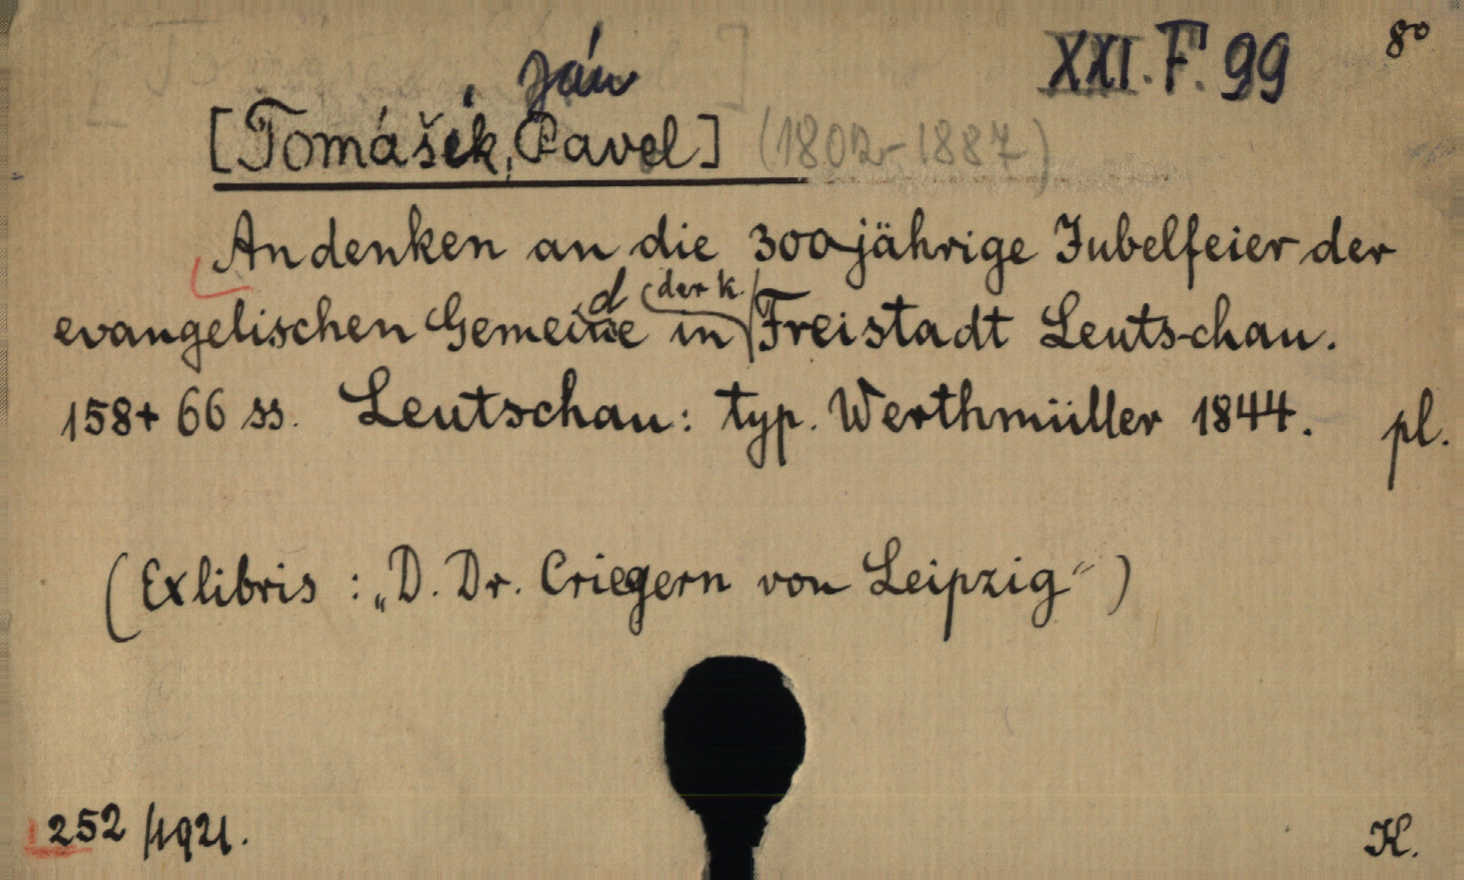 XXI. F. 99 8°
Ján
[Tomášik, Pavel] (1802-1887)
Andenken an die 300jährige Jubelfeier der
d der k.
evangelischen Gemeine in Freistadt Leutschau.
158+ 66 ss. Leutschau: typ. Werthmüller 1844. pl.
(Exlibris: „D. Dr. Criegern von Leipzig“)
252/1921. K.